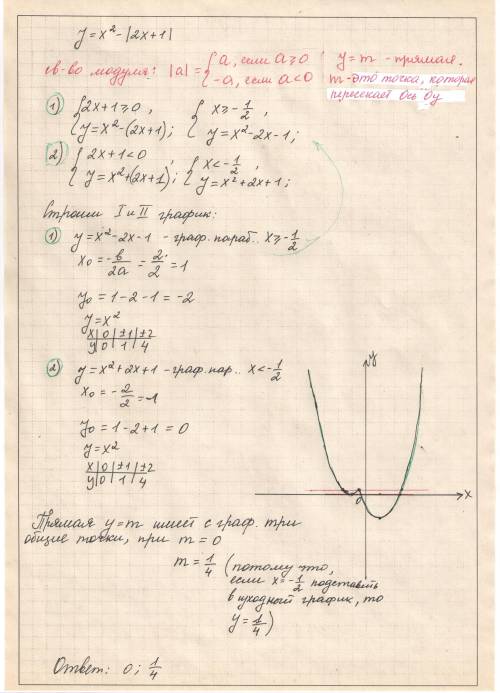 y = x² - |2x+1|
св-во модуля: |a| = { a, если a ⩾ 0
-a, если a < 0
y = m - прямая.
m - это точка, которая
пересекает Ось Oy
1) { 2x+1 ⩾ 0, { x ⩾ -1/2,
y = x² - (2x+1); y = x² - 2x - 1;
2) { 2x+1 < 0, { x < -1/2,
y = x² + (2x+1); y = x² + 2x + 1;
Строим I и II график:
1) y = x² - 2x - 1 - граф. параб.. x ⩾ -1/2
x₀ = -в/2a = 2/2 = 1
y₀ = 1 - 2 - 1 = -2
y = x²
x | 0 | ±1 | ±2
y | 0 | 1 | 4
2) y = x² + 2x + 1 - граф. пар.. x < -1/2
x₀ = -2/2 = -1
y₀ = 1 - 2 + 1 = 0
y = x²
x | 0 | ±1 | ±2
y | 0 | 1 | 4
y
x
0
Прямая y = m имеет с граф. три
общие точки, при m = 0
m = 1/4 (потому что,
если x = -1/2 подставить
в исходный график, то
y = 1/4)
Ответ: 0; 1/4